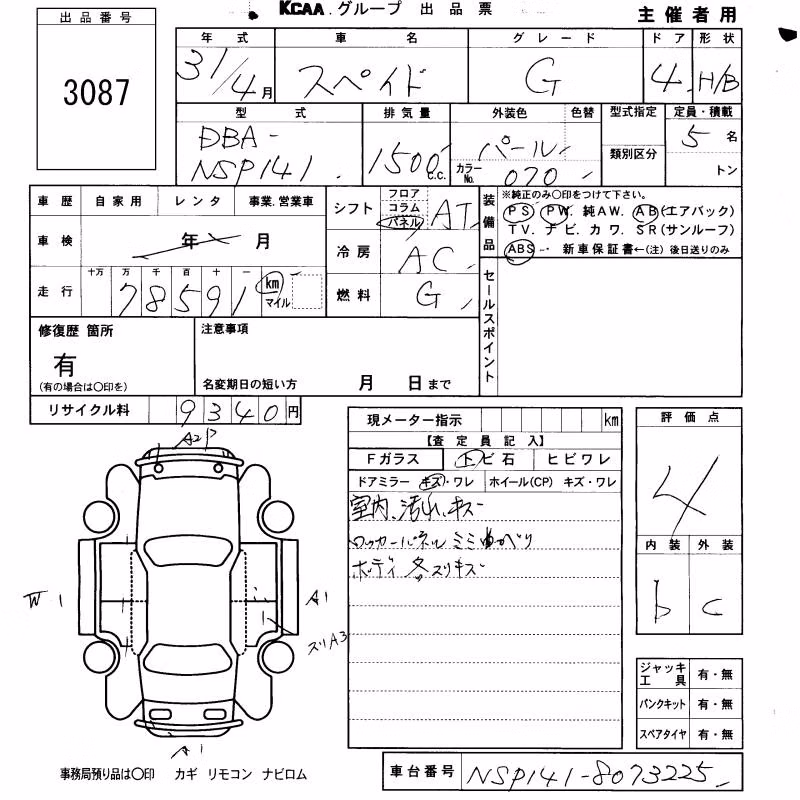 KCAA.グループ 出品票
主催者用
出品番号
3087
年式 車名 グレード ドア 形状
31/4月 スペイド G 4 H/B
型式 排気量 外装色 色替 型式指定 定員・積載
DBA-
NSP141 1500c.c. パール 5名
カラーNo. 070 類別区分 トン
車歴 自家用 レンタ 事業.営業車
車検 年 月
走行 十万 万 千 百 十 一
78591 km マイル
シフト フロア コラム パネル AT
冷房 AC
燃料 G
装備品
※純正のみ○印をつけて下さい。
PS PW. 純AW. AB(エアバック)
TV. ナビ. カワ. SR(サンルーフ)
ABS 新車保証書←(注) 後日送りのみ
セールスポイント
修復歴 箇所
有
(有の場合は○印を)
注意事項
名変期日の短い方 月 日まで
リサイクル料 9340円
現メーター指示 km
【査定員記入】
Fガラス トビ石 ヒビワレ
ドアミラー キズ・ワレ ホイール(CP) キズ・ワレ
室内、汚れ、キズ
ロッカーパネル ミミ
ボディ 各スリキズ
評価点
4
内装 外装
b c
A2P
W1
A1
スリA3
A1
ジャッキ工具 有・無
パンクキット 有・無
スペアタイヤ 有・無
事務局預り品は○印 カギ リモコン ナビロム
車台番号 NSP141-8073225